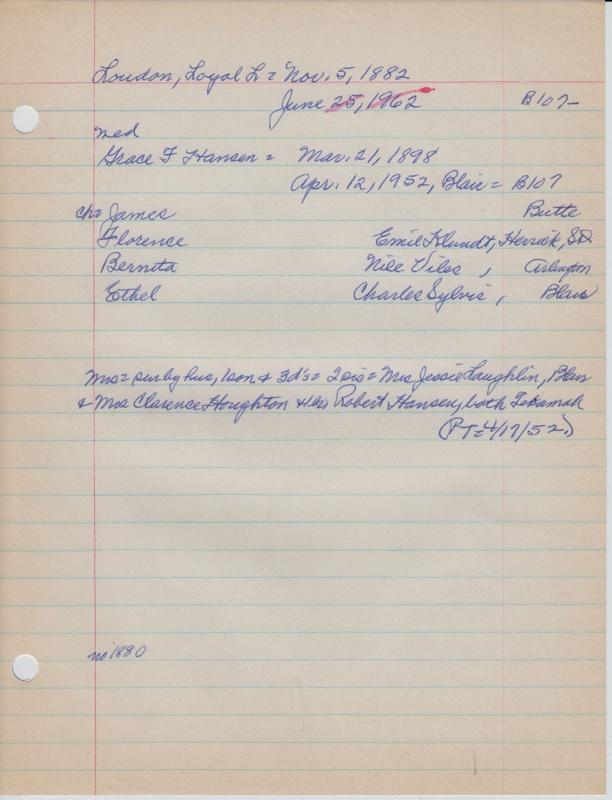 Loudon, Loyal L = Nov. 5, 1882
June 25, 1962 B107
med
Grace F Hansen = Mar. 21, 1898
Apr. 12, 1952, Blair = B107
ch = James Butte
Florence Emil Klundt, Herrick, SD
Bernita Nile Viles, Arlington
Ethel Charles Sylvis, Blair
Mrs = sur by hus, 1 son & 3 d's = 2 sis = Mrs Jessie Laughlin, Blair
& Mrs Clarence Houghton & bro Robert Hansen, both Tekamah
(PT = 4/17/52.)
no 1880